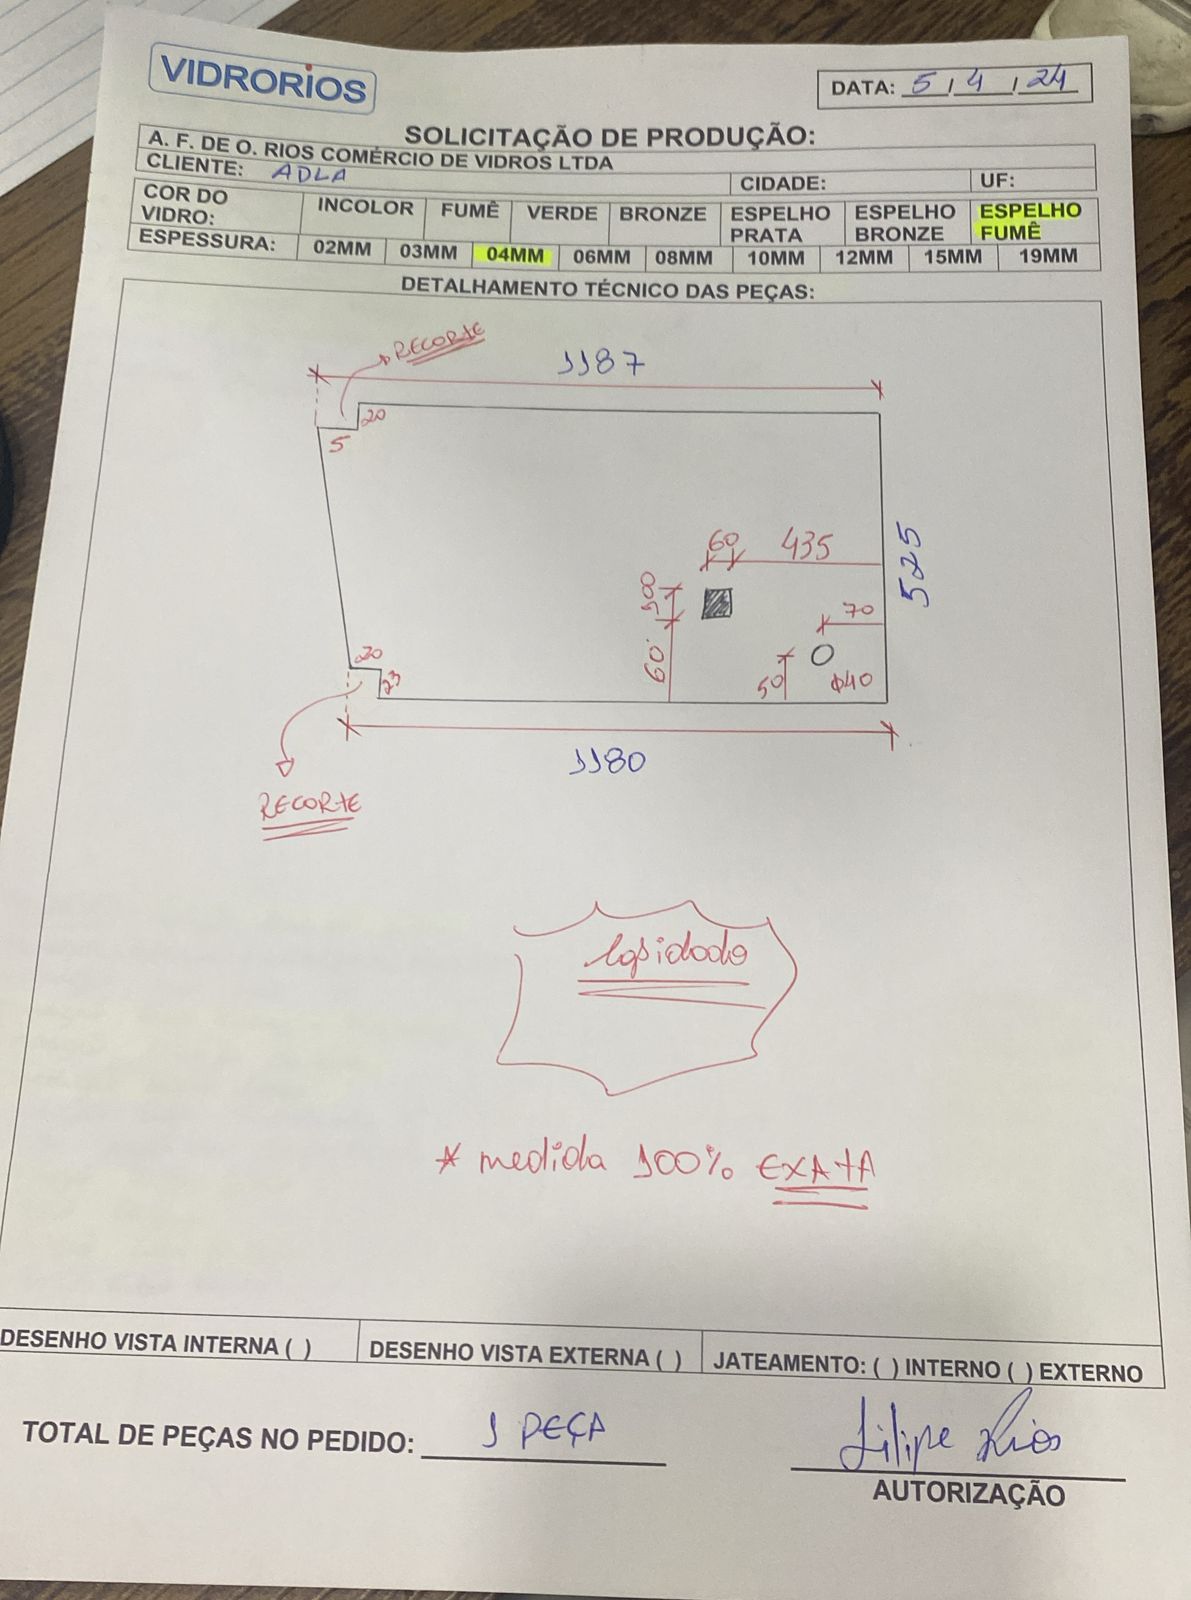 VIDRORIOS
DATA: 5 / 4 / 24
SOLICITAÇÃO DE PRODUÇÃO:
A. F. DE O. RIOS COMÉRCIO DE VIDROS LTDA
CLIENTE: ADLA CIDADE: UF:
COR DO VIDRO: INCOLOR FUMÊ VERDE BRONZE ESPELHO PRATA ESPELHO BRONZE ESPELHO FUMÊ
ESPESSURA: 02MM 03MM 04MM 06MM 08MM 10MM 12MM 15MM 19MM
DETALHAMENTO TÉCNICO DAS PEÇAS:
RECORTE
1187
20
5
60 435
525
100
70
60
20
23
50
Φ40
1180
RECORTE
lapidado
* medida 100% EXATA
DESENHO VISTA INTERNA ( ) DESENHO VISTA EXTERNA ( ) JATEAMENTO: ( ) INTERNO ( ) EXTERNO
TOTAL DE PEÇAS NO PEDIDO: 1 PEÇA
Filipe Rios
AUTORIZAÇÃO